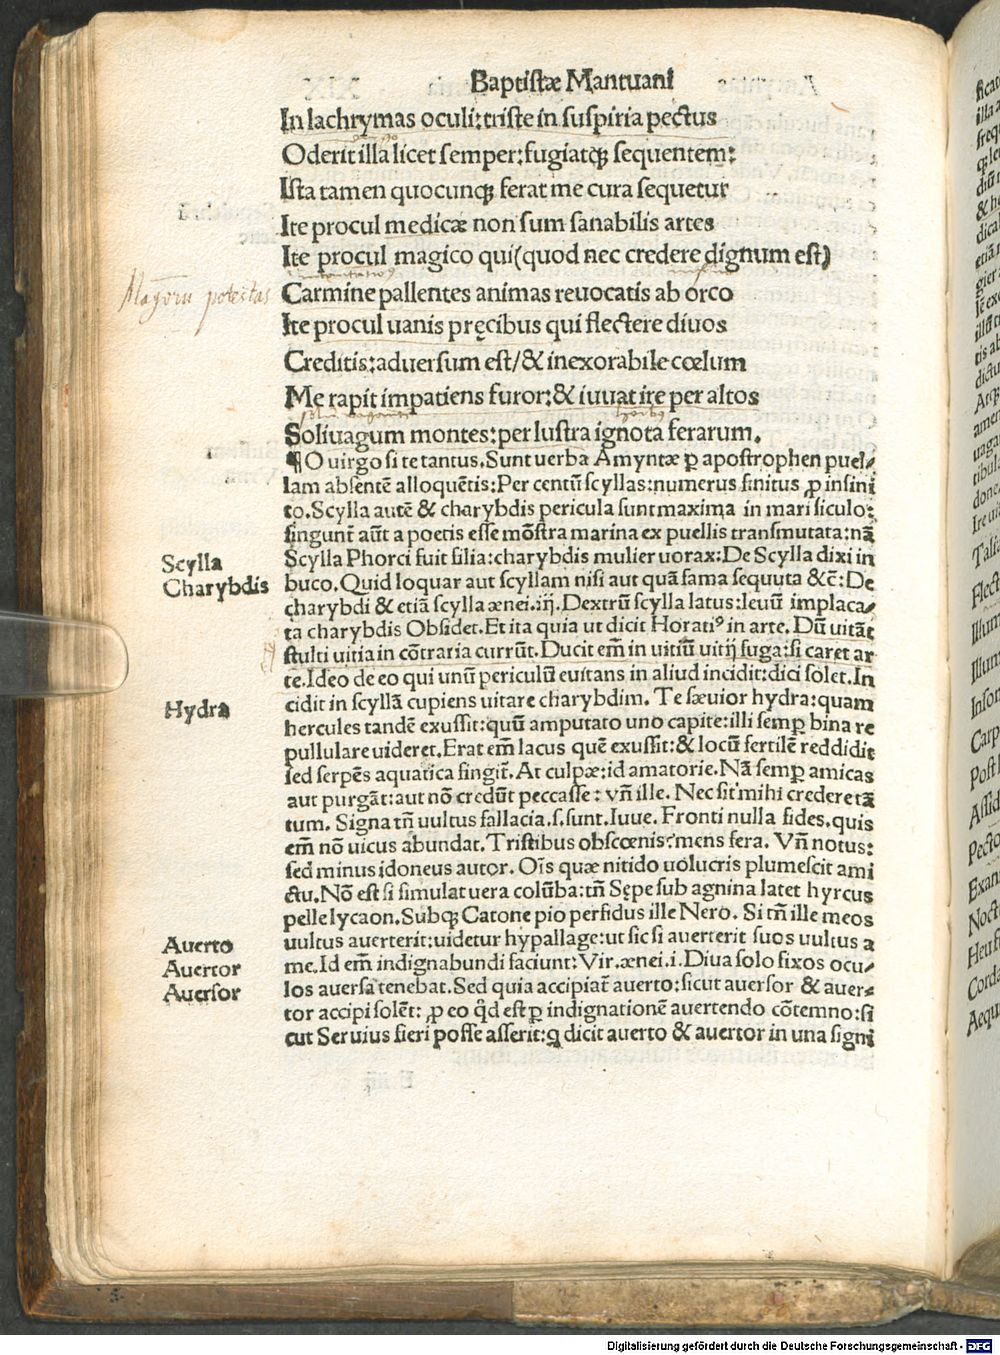 Baptistæ Mantuani
In lachrymas oculi: triste in suspiria pectus
Oderit illa licet semper: fugiatq; sequentem:
Ista tamen quocunq; ferat me cura sequetur
Ite procul medicæ non sum sanabilis artes
Ite procul magico qui (quod nec credere dignum est)
Magorū potestas
Carmine pallentes animas reuocatis ab orco
Ite procul uanis pręcibus qui flectere diuos
Creditis: aduersum est/ & inexorabile cœlum
Me rapit impatiens furor: & iuuat ire per altos
Soliuagum montes: per lustra ignota ferarum.
¶ O uirgo si te tantus. Sunt uerba Amyntæ p̱ apostrophen puel⸗
lam absentē alloquētis: Per centū scyllas: numerus finitus ꝓ infini
to. Scylla autē & charybdis pericula sunt maxima in mari siculo:
fingunt aūt a poetis esse mōstra marina ex puellis transmutata: nā
Scylla
Scylla Phorci fuit filia: charybdis mulier uorax: De Scylla dixi in
Charybdis
buco. Quid loquar aut scyllam nisi aut quā fama sequuta &c̄: De
charybdi & etiā scylla ænei. iij. Dextrū scylla latus: leuū implaca⸗
ta charybdis Obsidet. Et ita quia ut dicit Horatiꝰ in arte. Dū uitāt
stulti uitia in cōtraria currūt. Ducit em̄ in uitiū uitij fuga: si caret ar
te. Ideo de eo qui unū periculū euitans in aliud incidit: dici solet. In
cidit in scyllā cupiens uitare charybdim. Te sæuior hydra: quam
Hydra
hercules tandē exussit: quū amputato uno capite: illi semp̱ bina re
pullulare uideret. Erat em̄ lacus quē exussit: & locū fertilē reddidit
sed serpēs aquatica fingit̄. At culpæ: id amatorie. Nā semp̱ amicas
aut purgāt: aut nō credūt peccasse: vn̄ ille. Nec sit mihi credere tā
tum. Signa tn̄ uultus fallacia. s. sunt. Iuue. Fronti nulla fides. quis
em̄ nō uicus abundat. Tristibus obscœnis? mens fera. Vn̄ notus:
sed minus idoneus autor. Oīs quæ nitido uolucris plumescit ami
ctu. Nō est si simulat uera colūba: tn̄ Sępe sub agnina latet hyrcus
pelle lycaon. Subq; Catone pio perfidus ille Nero. Si tn̄ ille meos
Auerto
uultus auerterit: uidetur hypallage: ut sic si auerterit suos uultus a
Auertor
me. Id em̄ indignabundi faciunt: Vir. ænei. i. Diua solo fixos ocu⸗
Auersor
los auersa tenebat. Sed quia accipiat̄ auerto: sicut auersor & auer⸗
tor accipi solēt: ꝓ eo q̄d est p̱ indignationē auertendo cōtemno: si
cut Seruius fieri posse asserit: ꝙ dicit auerto & auertor in una signi
Digitalisierung gefördert durch die Deutsche Forschungsgemeinschaft - DFG